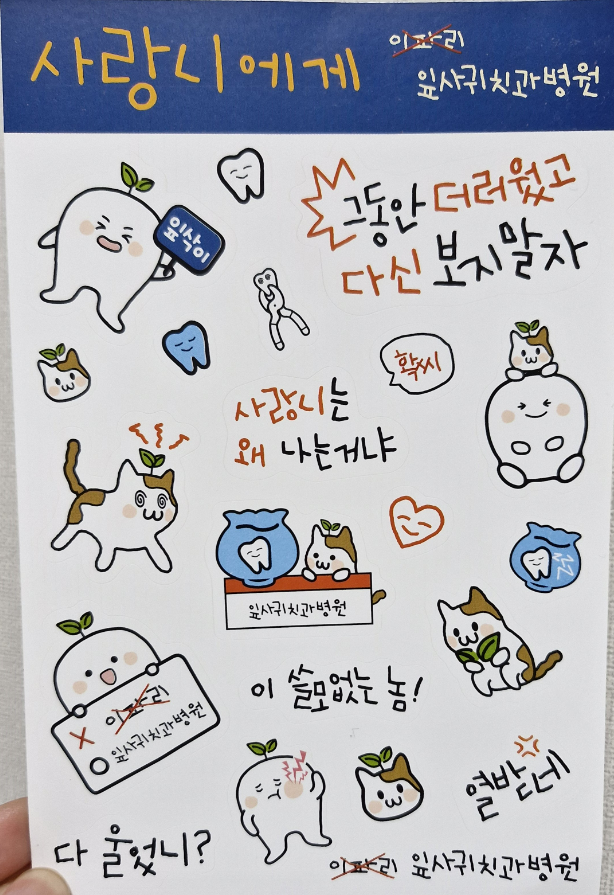 사랑니에게
이파리
잎사귀치과병원
잎삭이
그동안 더러웠고
다신 보지말자
확씨
사랑니는
왜 나는거냐
잎사귀치과병원
이 쓸모없는 놈!
X 이파리
O 잎사귀치과병원
열받네
다 울었니?
이파리 잎사귀치과병원